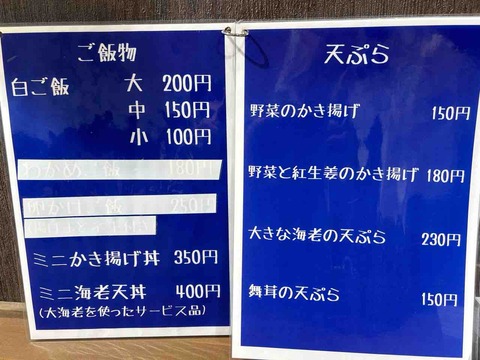 ご飯物
白ご飯 大 200円
中 150円
小 100円
わかめご飯 180円
卵かけご飯 250円
ミニかき揚げ丼 350円
ミニ海老天丼 400円
(大海老を使ったサービス品)
天ぷら
野菜のかき揚げ 150円
野菜と紅生姜のかき揚げ 180円
大きな海老の天ぷら 230円
舞茸の天ぷら 150円